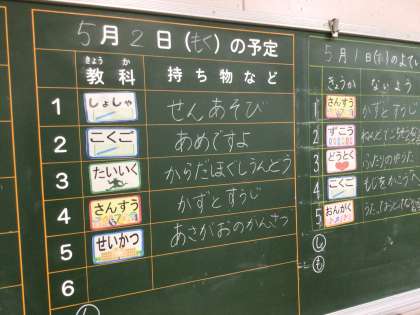 5月2日(もく)の予定
きょうか
教科 持ち物など
1 しょしゃ せんあそび
2 こくご あめですよ
3 たいいく からだほぐしうんどう
4 さんすう かずとすうじ
5 せいかつ あさがおのかんさつ
6
5月1日(水)のよてい
きょうか ないよう
1 さんすう かずとすうじ
2 ずこう
3 どうとく ふたりのゆうた
4 こくご もじをかこう
5 おんがく
し
も